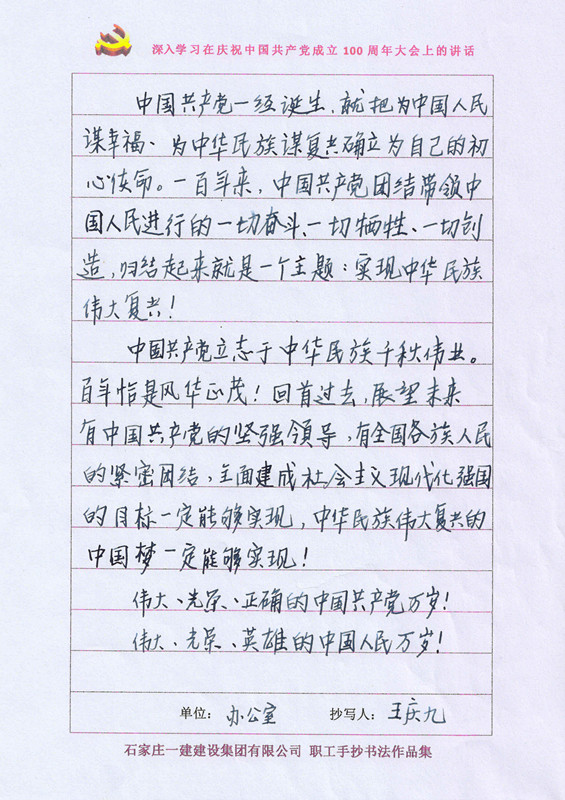 深入学习在庆祝中国共产党成立 100 周年大会上的讲话
中国共产党一经诞生，就把为中国人民
谋幸福、为中华民族谋复兴确立为自己的初
心使命。一百年来，中国共产党团结带领中
国人民进行的一切奋斗、一切牺牲、一切创
造，归结起来就是一个主题：实现中华民族
伟大复兴！
中国共产党立志于中华民族千秋伟业。
百年恰是风华正茂！回首过去，展望未来
有中国共产党的坚强领导，有全国各族人民
的紧密团结，全面建成社会主义现代化强国
的目标一定能够实现，中华民族伟大复兴的
中国梦一定能够实现！
伟大、光荣、正确的中国共产党万岁！
伟大、光荣、英雄的中国人民万岁！
单位： 办公室 抄写人： 王庆九
石家庄一建建设集团有限公司 职工手抄书法作品集